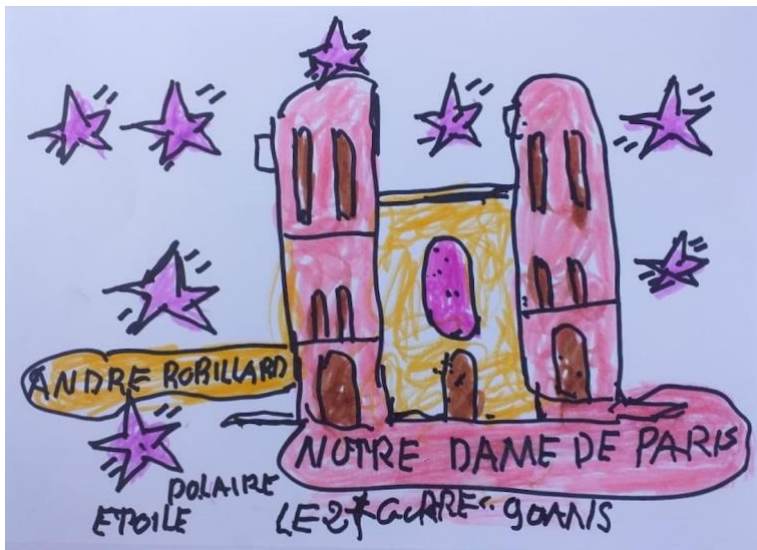 ANDRE ROBILLARD
NOTRE DAME DE PARIS
POLAIRE
ETOILE
LE 2 90ANS